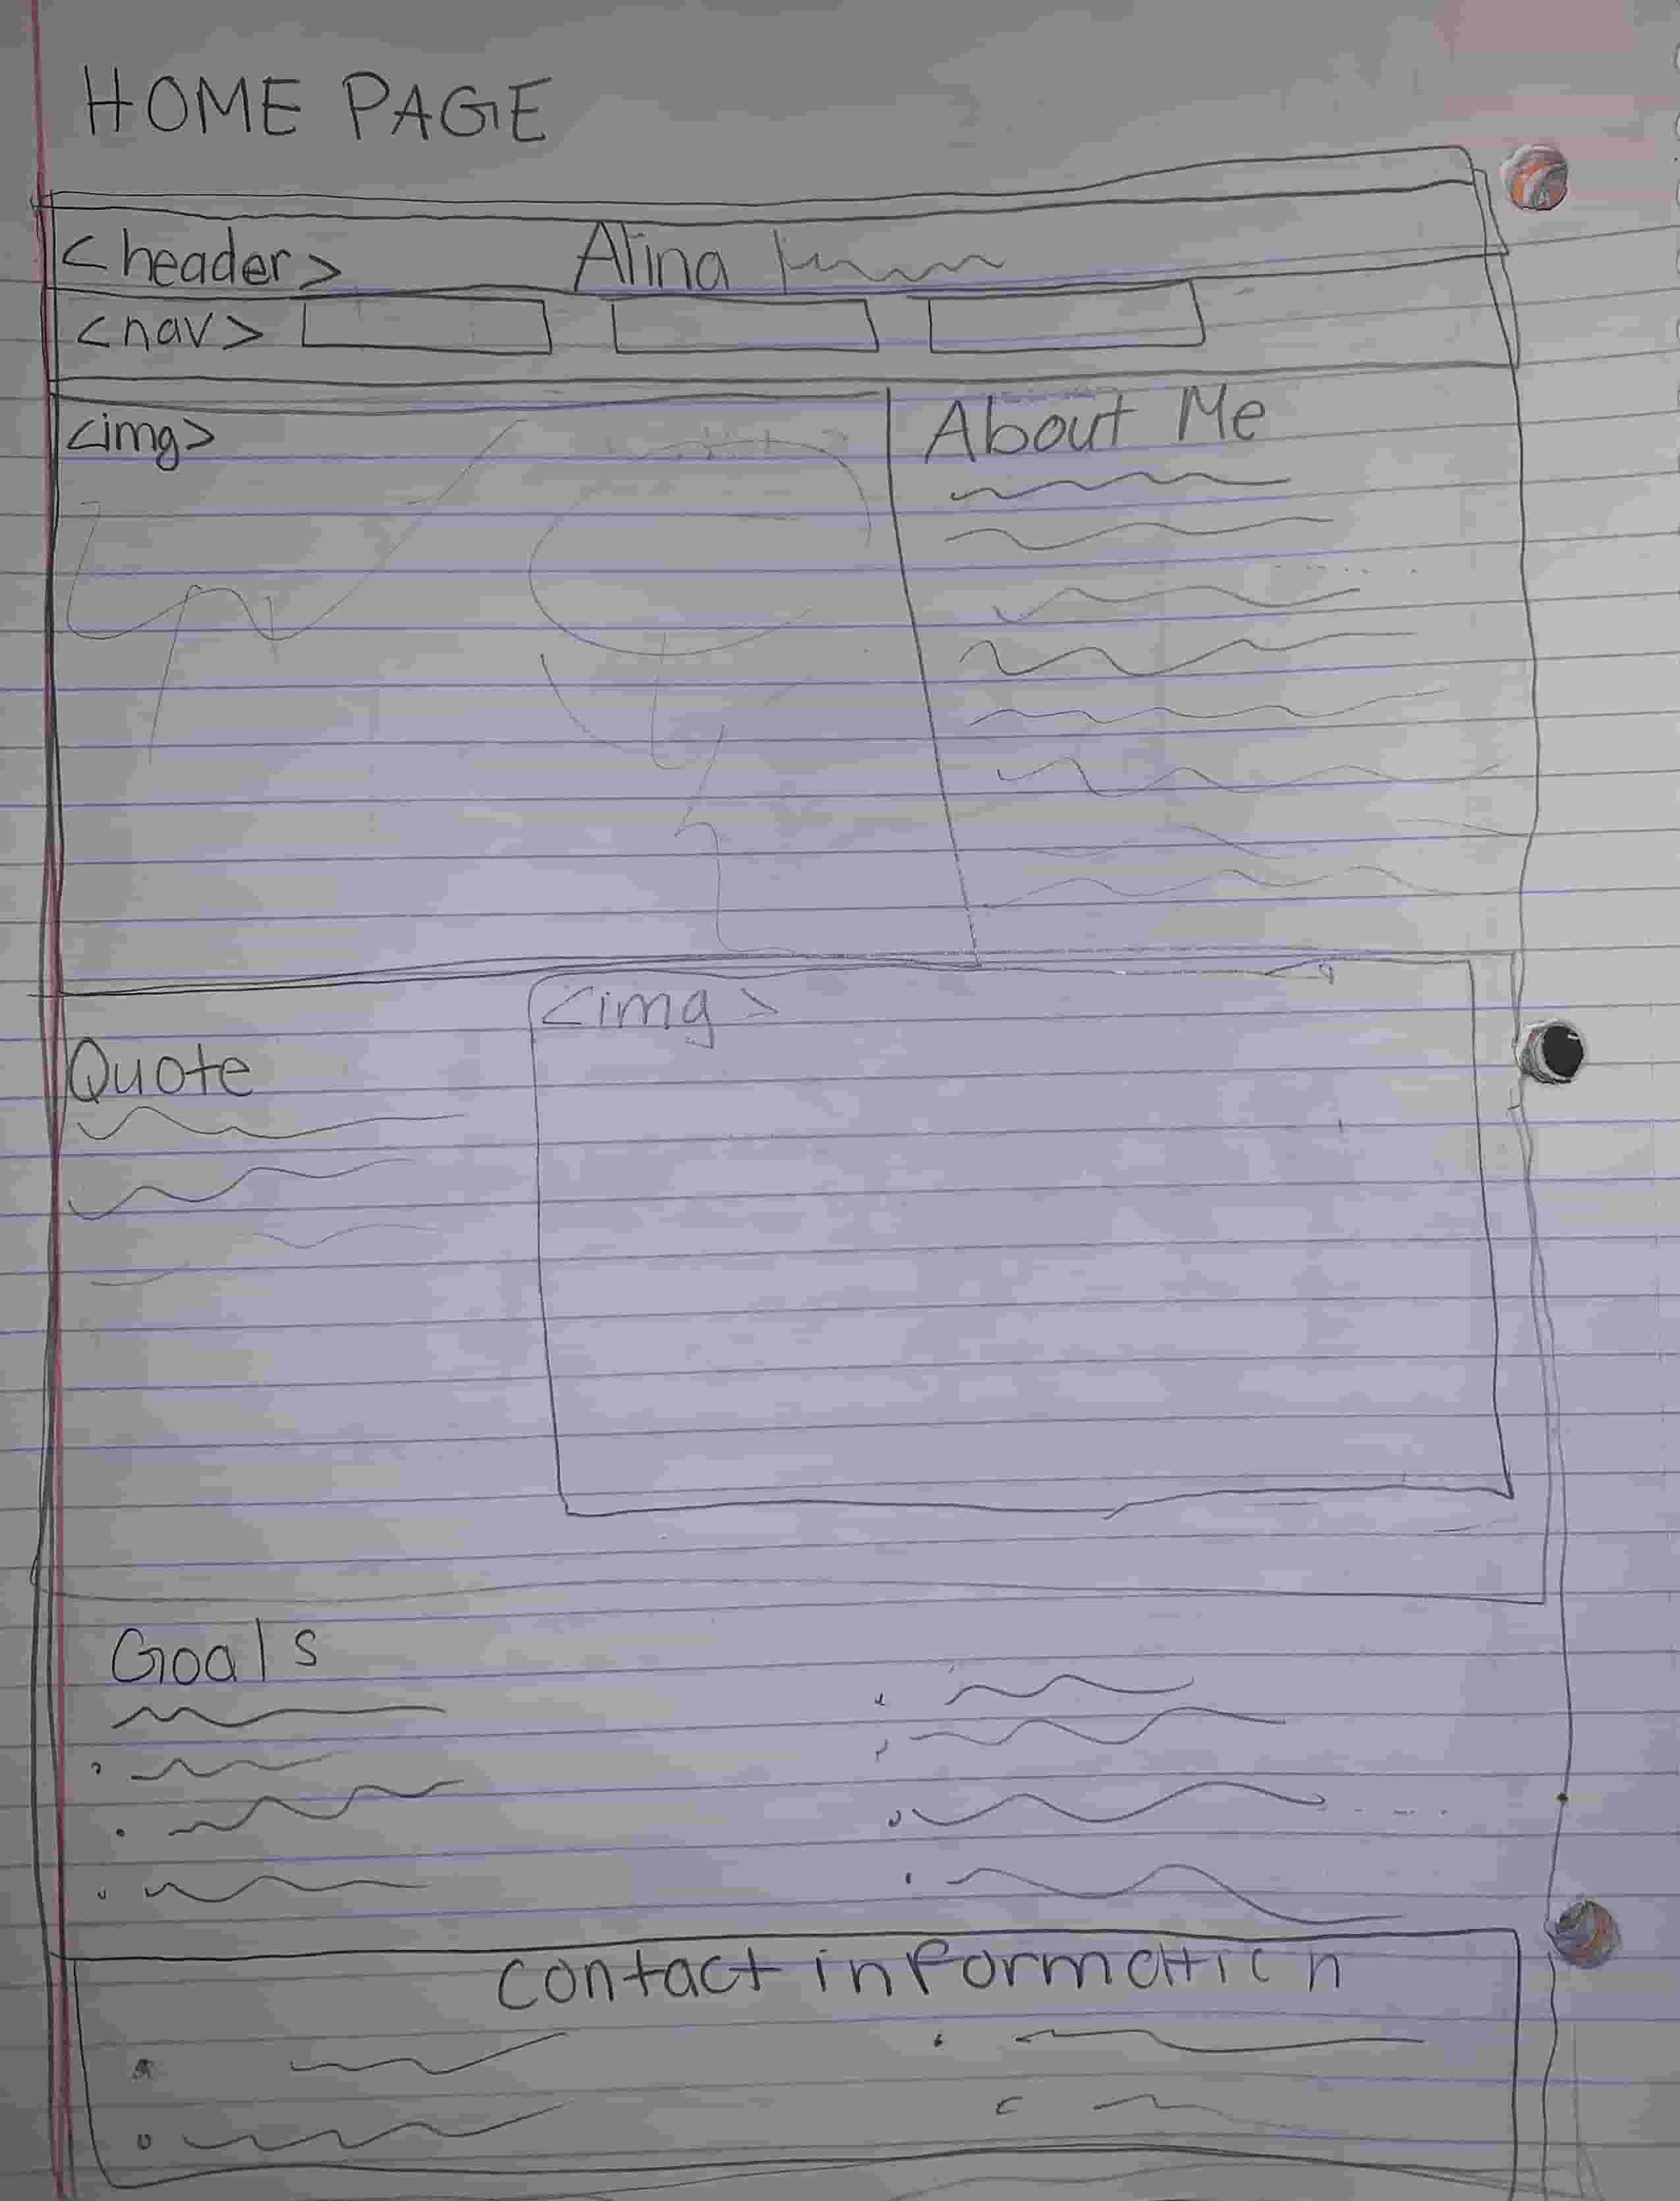 HOME PAGE
<header> Alina
<nav>
<img> About Me
<img>
Quote
Goals
contact information